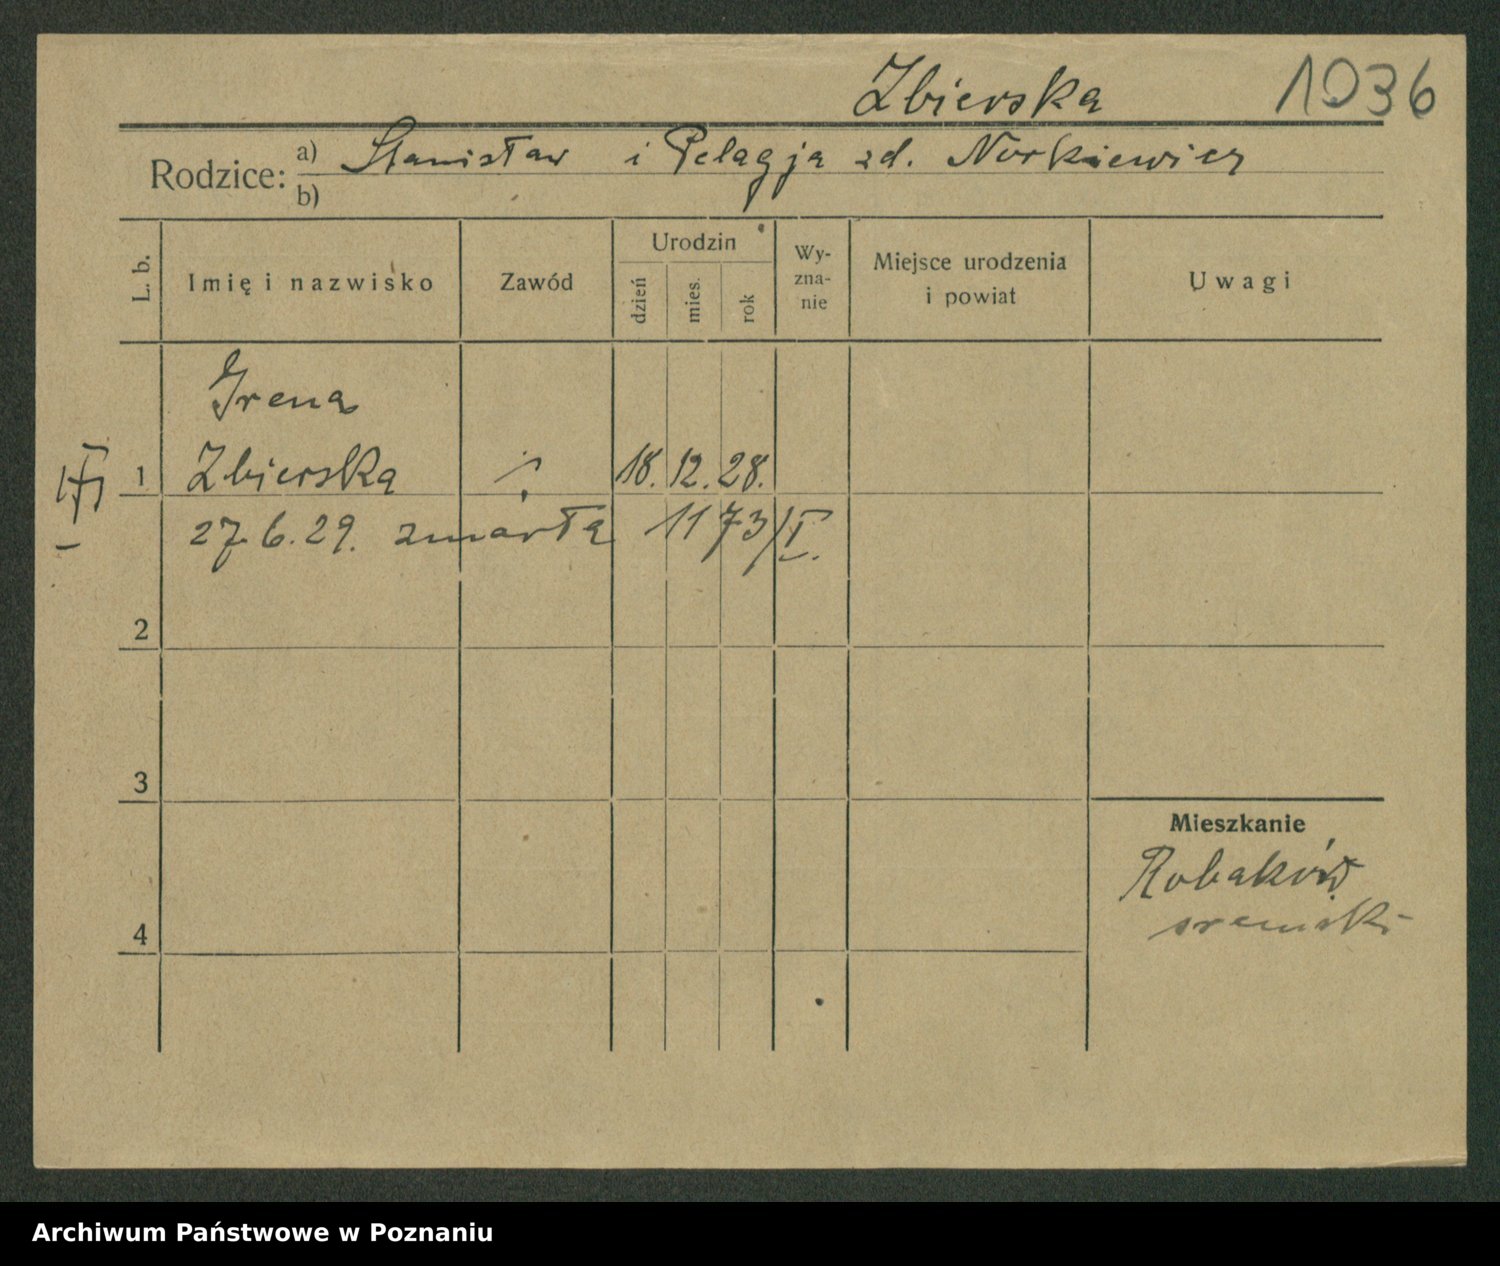 Zbierska 1036
Rodzice: a) Stanisław i Pelagja zd. Norkiewicz
b)
L. b. Imię i nazwisko Zawód Urodzin dzień mies. rok Wy-zna-nie Miejsce urodzenia i powiat Uwagi
Irena
1 Zbierska 18. 12. 28.
27.6.29. zmarła 1173/I.
2
3
Mieszkanie
Robaków
4
Archiwum Państwowe w Poznaniu